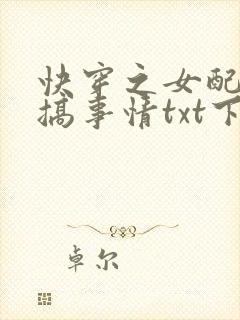 快穿之女配
搞事情txt下
卓尔